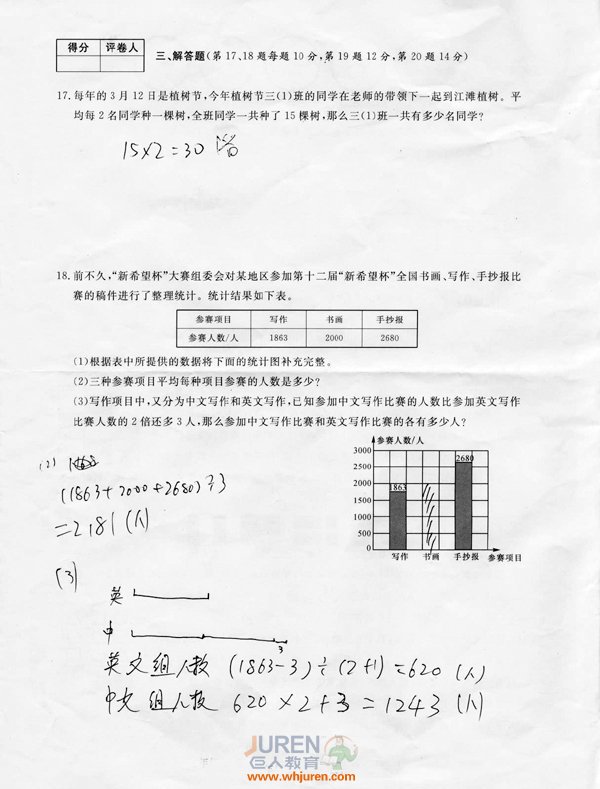 得分 评卷人
三、解答题(第17、18题每题10分,第19题12分,第20题14分)
17.每年的3月12日是植树节,今年植树节三(1)班的同学在老师的带领下一起到江滩植树。平
均每2名同学种一棵树,全班同学一共种了15棵树,那么三(1)班一共有多少名同学?
15×2=30
18.前不久,“新希望杯”大赛组委会对某地区参加第十二届“新希望杯”全国书画、写作、手抄报比
赛的稿件进行了整理统计。统计结果如下表。
参赛项目 写作 书画 手抄报
参赛人数/人 1863 2000 2680
(1)根据表中所提供的数据将下面的统计图补充完整。
(2)三种参赛项目平均每种项目参赛的人数是多少?
(3)写作项目中,又分为中文写作和英文写作,已知参加中文写作比赛的人数比参加英文写作
比赛人数的2倍还多3人,那么参加中文写作比赛和英文写作比赛的各有多少人?
参赛人数/人
3000
2500
2000
1500
1000
500
0
1863
2680
写作 书画 手抄报 参赛项目
(2)
(1863+2000+2680)÷3
=2181(人)
(3)
英
中
3
英文组人数 (1863-3)÷(2+1)=620 (人)
中文组人数 620×2+3=1243 (人)
JUREN
巨人教育
www.whjuren.com